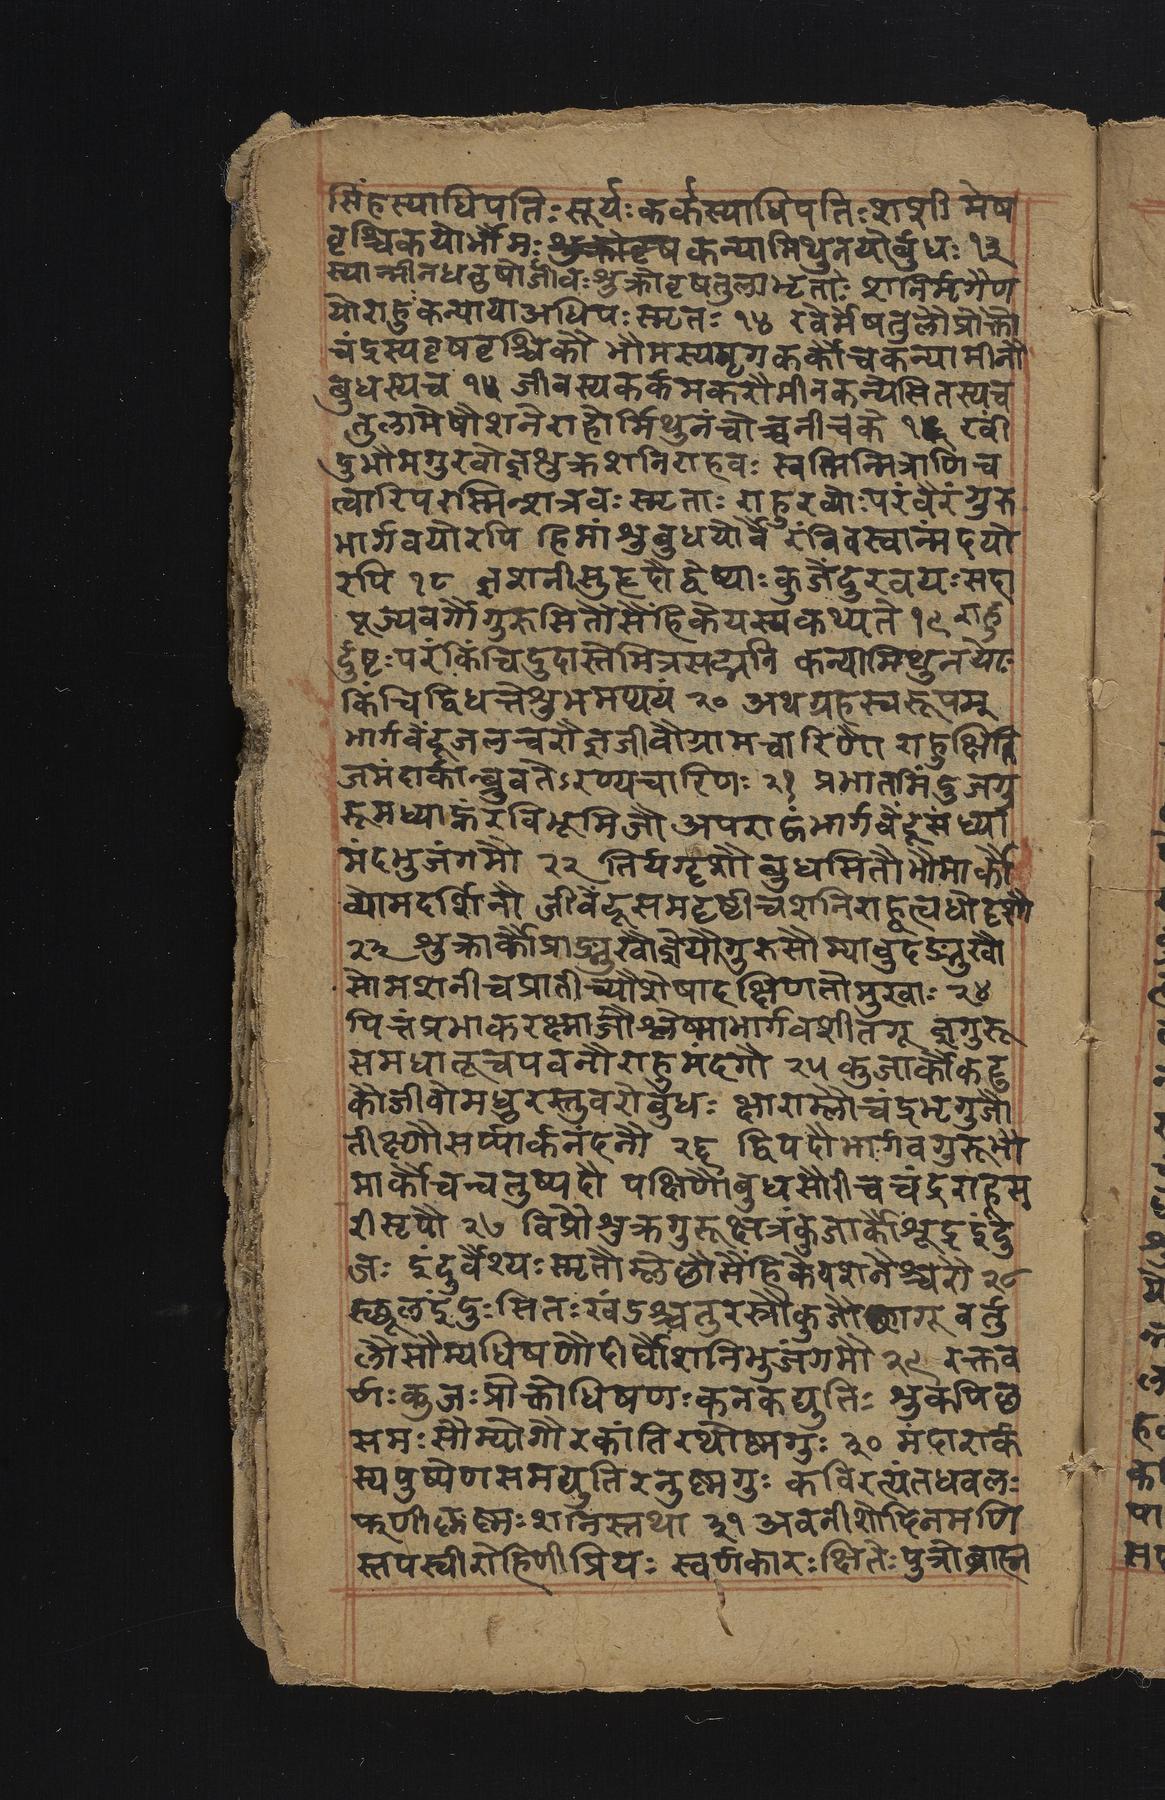 सिंहस्याधिपतिः सूर्यः कर्कस्याधिपतिः शशी मेष
वृश्चिकयोर्भौमः शुक्रोवृष कन्यामिथुनयोर्बुधः १३
स्यान्मीनधनुषोर्जीवः शुक्रोवृषतुलाभृतोः शनिर्मृगेण
योराहुः कन्यायाअधिपः स्मृतः १४ रवेर्मेषतुलौप्रोक्तौ
चंद्रस्यवृषवृश्चिकौ भौमस्यमृगकर्कौचकन्यामीनौ
बुधस्यच १५ जीवस्यकर्कमकरौमीनकन्येसितस्यच
तुलामेषौशनेराहोर्मिथुनंचोच्चनीचके १६ रवीं
दुभौमगुरवोज्ञशुक्रशनिराहवः स्वस्मिन्मित्राणिच
त्वारिपरस्मिन्शत्रवः स्मृताः राहुरव्योः परंवैरंगुरु
भार्गवयोरपि हिमांशुबुधयोर्वैरंविवस्वान्मंदयो
रपि १८ ज्ञशनीसुहृदौद्वेष्याः कुजेंदुरवयः सदा
पूज्यवर्गोगुरुसितौसैंहिकेयस्यकथ्यते १९ राहु
र्दुष्टः परंकिंचिदुदास्तेमित्रसद्मनि कन्यामिथुनयोः
किंचिद्विधत्तेशुभमप्ययं २० अथग्रहस्वरूपम्
भार्गवेंदूजलचरौज्ञजीवौग्रामचारिणौ राहुक्षिति
जमंदार्कान्ब्रुवतेऽरण्यचारिणः २१ प्रभातमिंदुजगु
रूमध्याह्नंरविभूमिजौ अपराह्नंभार्गवेंदूसंध्यां
मंदभुजंगमौ २२ तिर्यग्दृशौ बुधसितौभौमार्कौ
व्योमदर्शिनौ जीवेंदूसमदृष्टीचशनिराहूत्वधोदृशौ
२३ शुक्रार्कौप्राङ्मुखौज्ञेयौगुरुसौम्यावुदङ्मुखौ
सोमशनीचप्रातीच्यौशेषादक्षिणतोमुखाः २४
पित्तंप्रभाकरक्ष्माजौश्लेष्माभार्गवशीतगू ज्ञगुरू
समधातूचपवनौराहुमंदगौ २५ कुजार्कौकटु
कौजीवोमधुरस्तुवरोबुधः क्षाराम्लौचंद्रभृगुजौ
तीक्ष्णौसर्प्पार्कनंदनौ २६ द्विपदौभार्गवगुरूभौ
मार्कौचचतुष्पदौ पक्षिणौबुधसौरीचचंद्रराहूस
रीसृपौ २७ विप्रौशुक्रगुरूक्षत्रंकुजार्कौशूद्रइंदु
जः इंदुर्वैश्यः स्मृतौम्लेछौसैंहिकेयशनैश्चरौ २८
स्छूलइंदुः सितः खंडश्चतुरस्रौकुजोष्णगू वर्तु
लौसौम्यधिषणौदीर्घौशनिभुजंगमौ २९ रक्तव
र्णः कुजः प्रोक्तोधिषणः कनकद्युतिः शुकपिछ
समः सौम्योगौरकांतिरथोष्मगुः ३० मंदारार्क
स्यपुष्पेणसमद्युतिरनुष्मगुः कविरत्यंतधवलः
फणीकृष्मः शनिस्तथा ३१ अवनीशोदिनमणि
स्तपस्वीरोहिणीप्रियः स्वर्णकारः क्षितेः पुत्रोब्राह्म